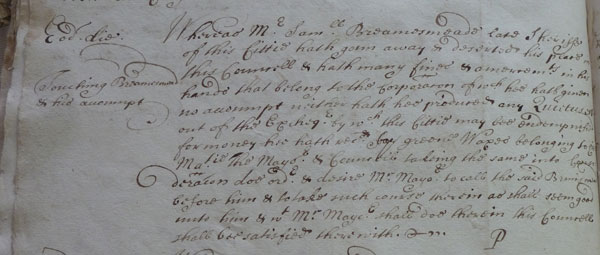 Eod. die.
Touching Breamesmead
& his accompt
Whereas Mr Sam: Breamesmeade late Sheriffe
of this Cittie hath gon away & deserted his place
this Councell & hath many fines & amercemts in his
hands that belong to the Corporacon of wch hee hath given
no accompt neither hath hee procured any Quietus
out of the Excheqr by wch this Cittie may bee endempnified
for money hee hath recd for greene Waxe belonging to
Matie The Mayor & Councell takeing the same into Consi
deracon doe ordr & desire Mr Mayor to call the said
before him & to take such course therein as shall seem good
unto him & wt Mr Mayor shall doe therein this Councell
shall bee satisfied therewith. &